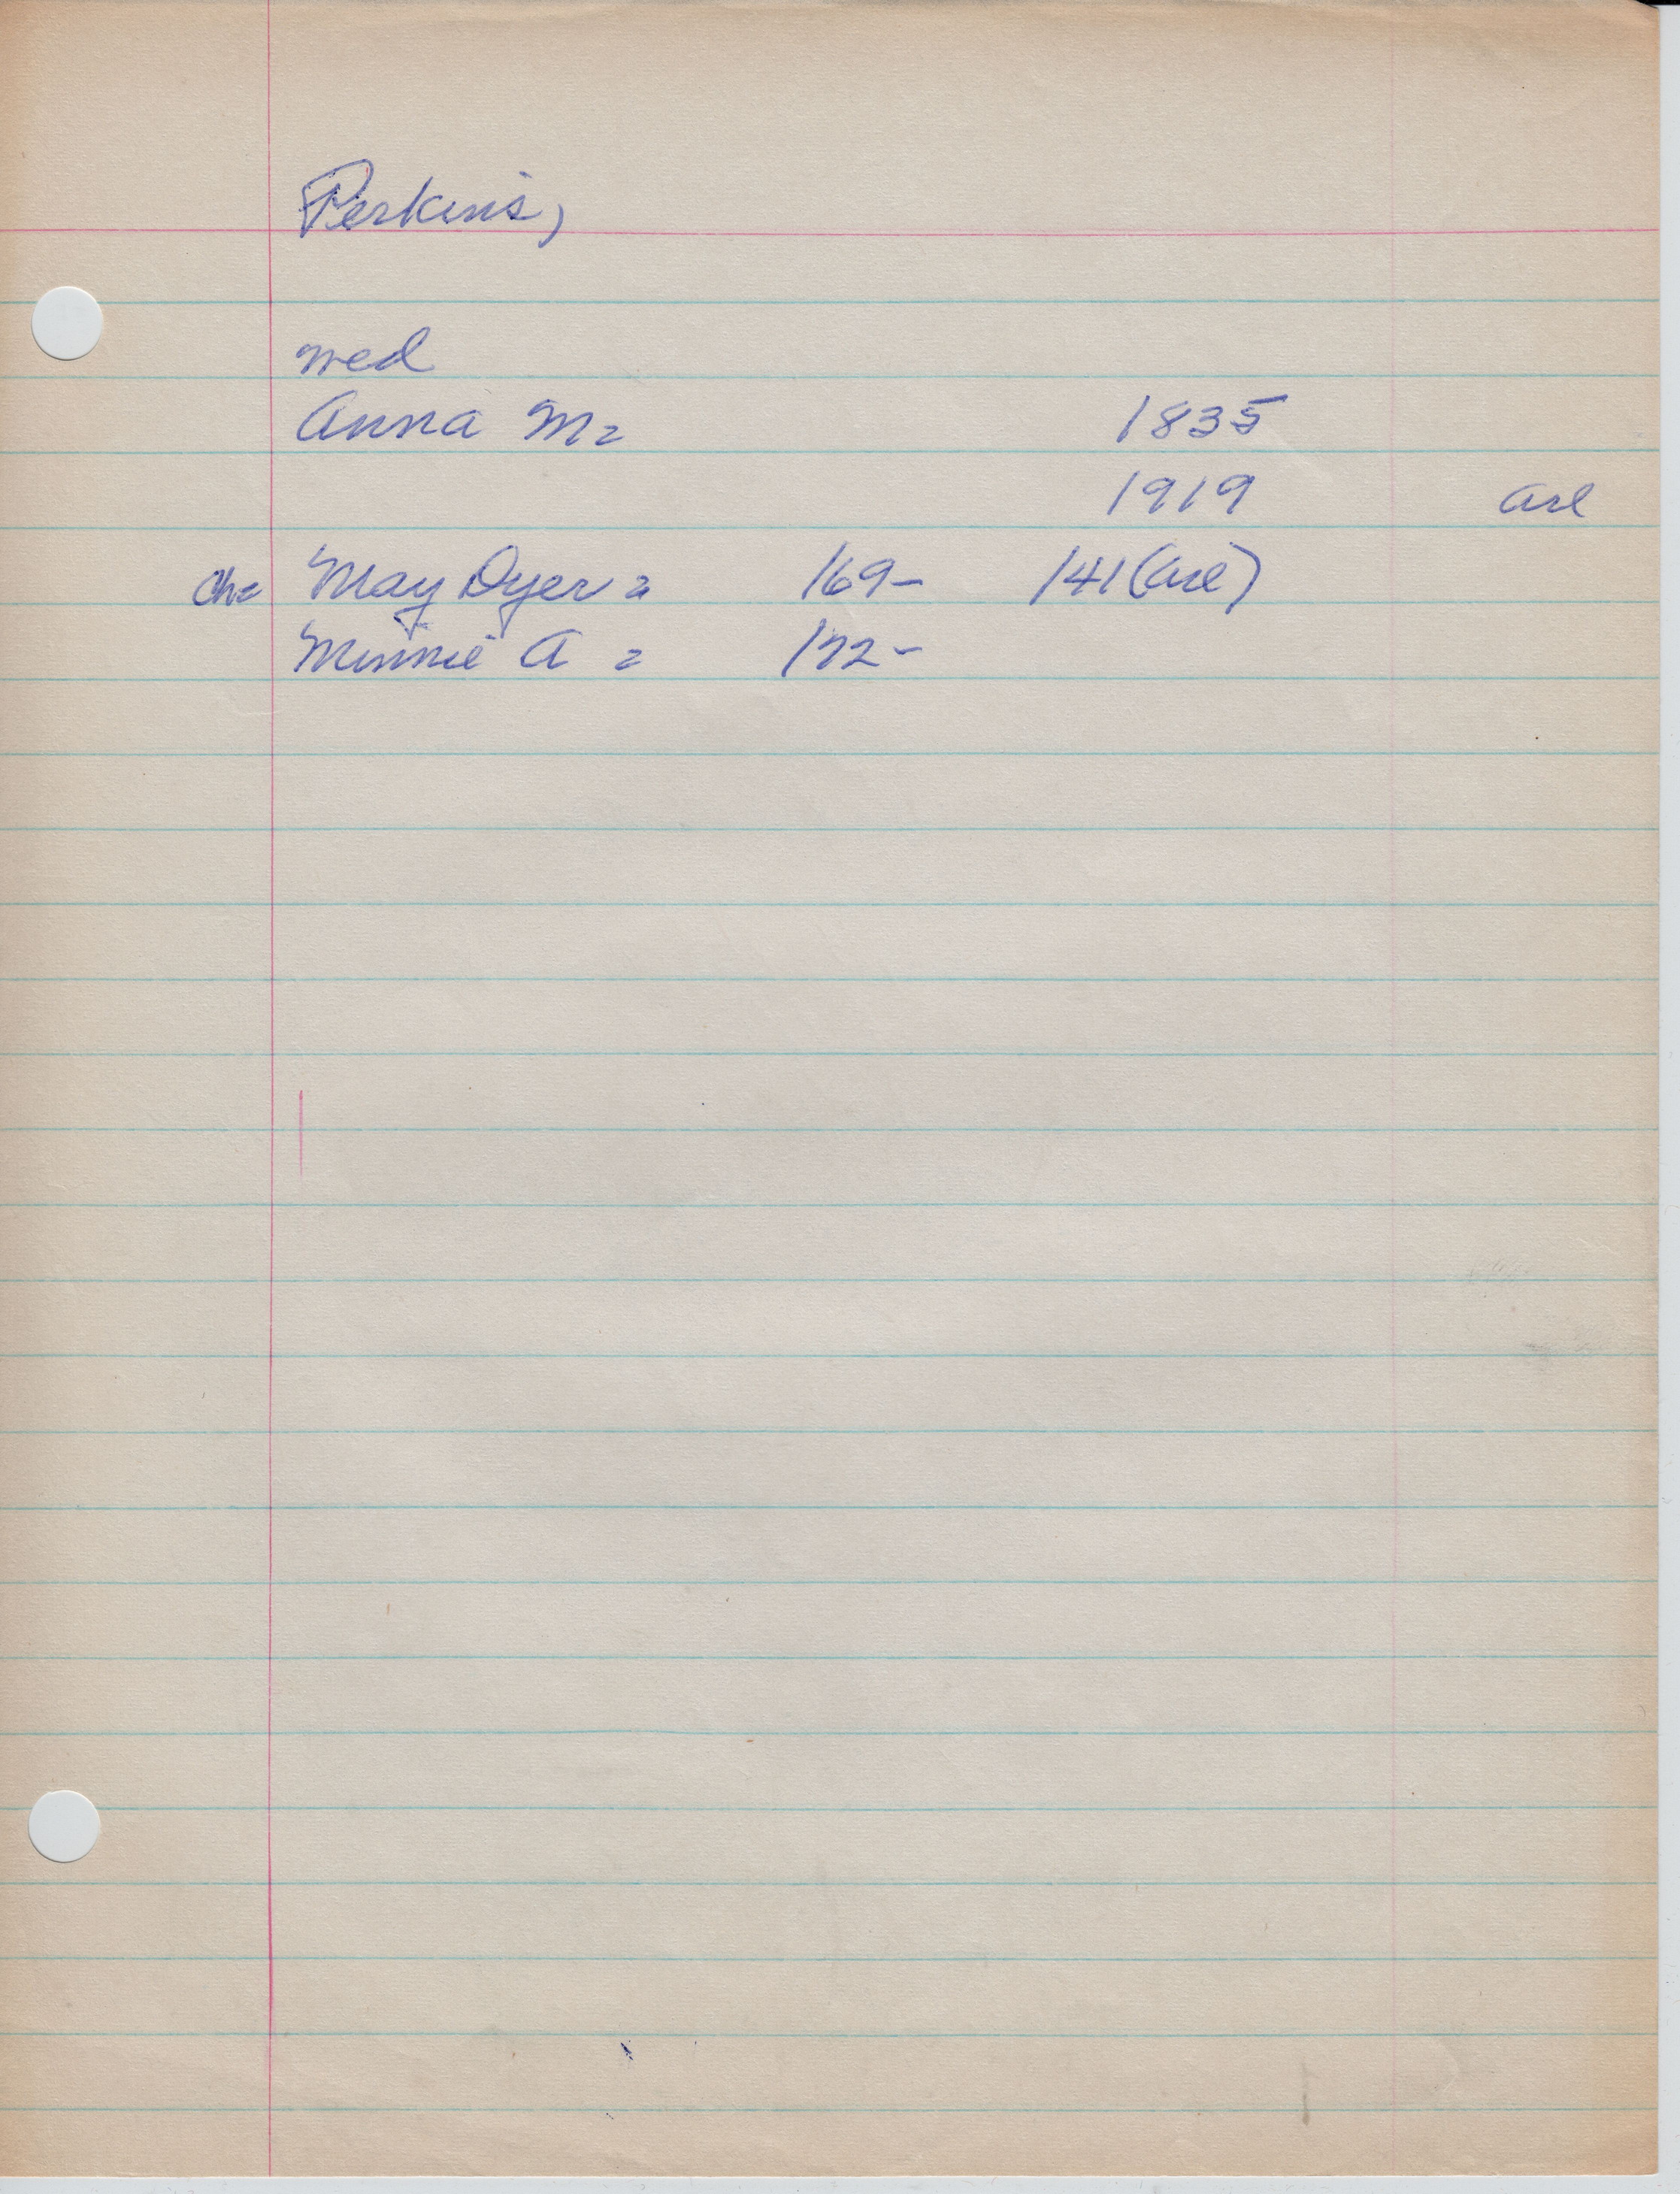 Perkins,
wed
Anna M= 1835
1919 Arl
Ch= May Dyer = 169- 141 (Arl)
Minnie A = 172-